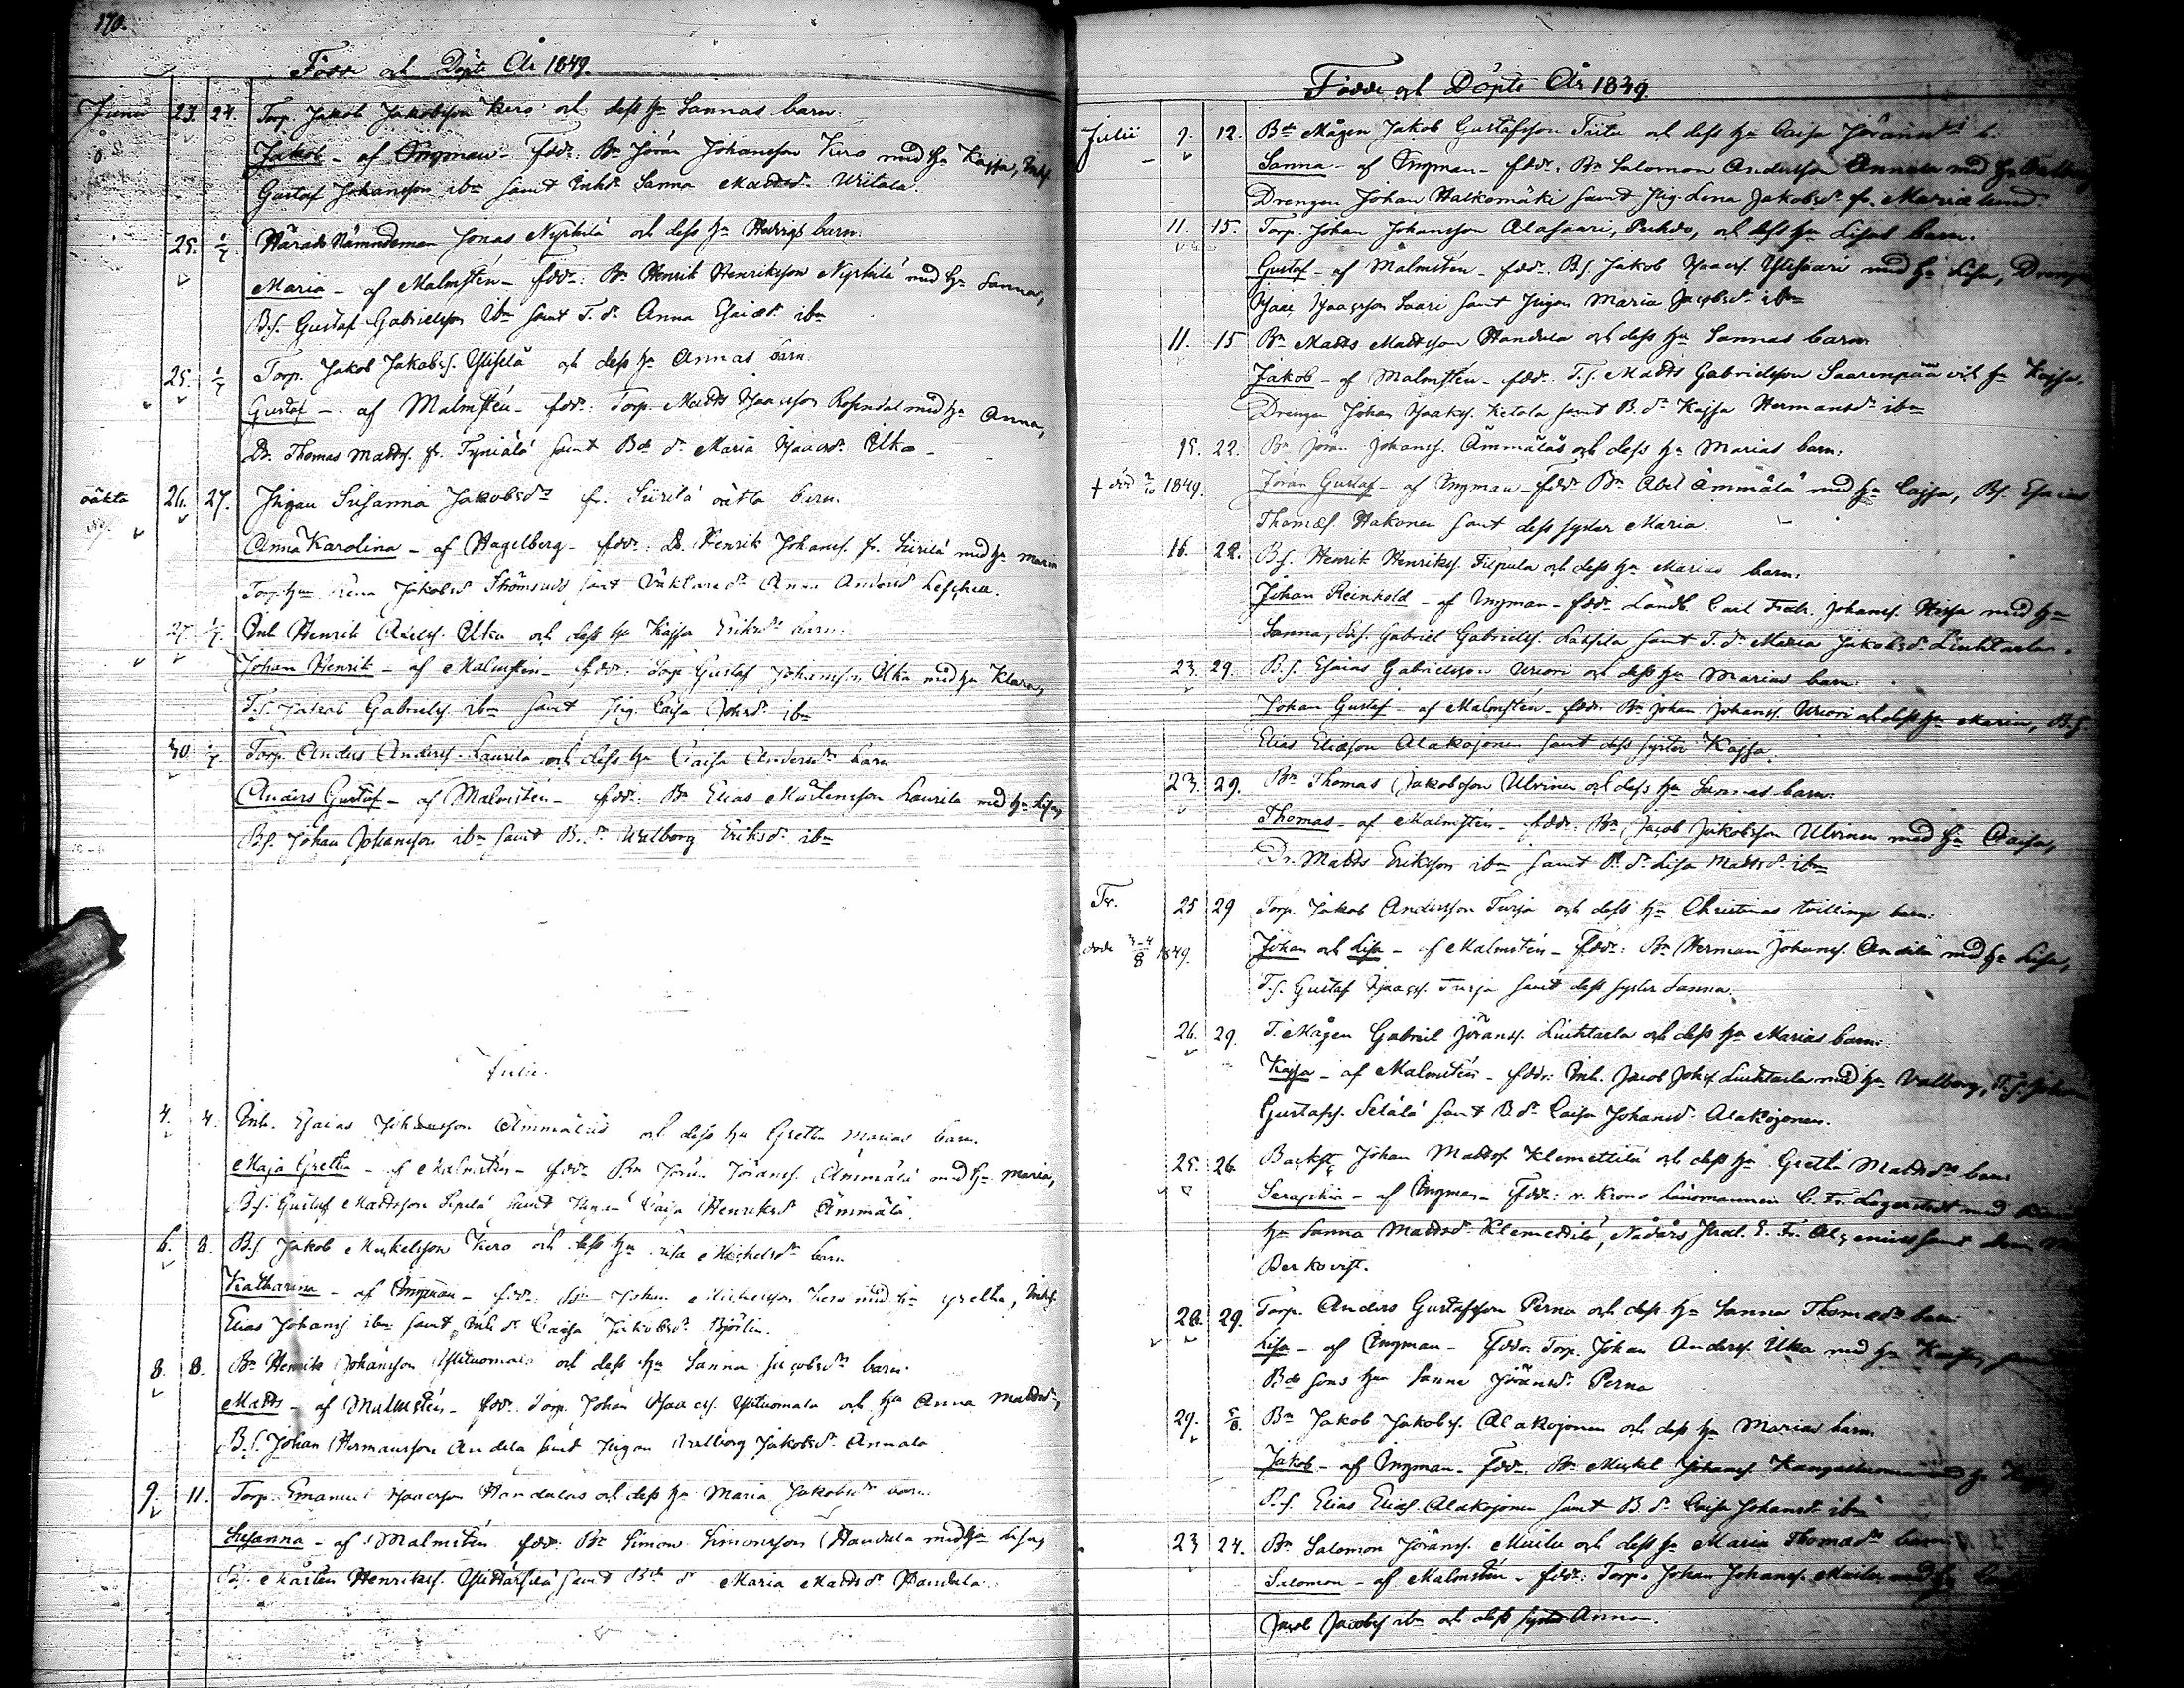 170.
Födde och Döpte År 1849.
Junii 23. 24. Torp. Jakob Jakobsson Kero och dess hu Sannas barn.
Jakob - af Ingman - fddr: Bn Jöran Johansson Kero med hu Kajsa, Inhs
Gustaf Johansson ibm samt Inhdr Sanna Mattsdr Writala.
25. 1/7. Härads Nämndeman Jonas Nyrhilä och dess hu Hedvigs barn.
Maria - af Malmstén - fddr: Bn Henrik Henriksson Nyrhilä med hu Sanna,
B.S. Gustaf Gabrielsson ibm samt T.dr Anna Esaiædr ibm
25. 1/7 Torp. Jakob Jakobss. Ylisilä och dess hu Annas barn.
Gustaf - af Malmstén - fddr: Torp. Matts Isaacsson Rosendal med hu Anna,
Dr. Thomas Mattss. fr. Tyniälä samt Bdedr Maria Isaacsdr Ilka -
oäkta 26. 27. Pigan Susanna Jakobsdrs fr. Siirilä oäkta barn.
Anna Karolina - af Hagelberg - fddr: Dr. Henrik Johanss. fr. Siirilä med hu Maria
Torp.hun Lena Jakobsdr Strömsund samt Anna Andersdr
27. 1/7. Inh Henrik Axelss. Ilka och dess hu Kajsa Eriksdrs barn.
Johan Henrik - af Malmstén - fddr: Torp Gustaf Johansson Ilka med hu Klara,
T.S. Jakob Gabrielss. ibm samt Pig. Caisa Johsdr ibm
30. 1/7. Torp. Anders Anderss. Laurila och dess hu Caisa Andersdrs barn
Anders Gustaf - af Malmstén - fddr: Bn Elias Mårtensson Laurila med hu Lisa,
BS. Johan Johansson ibm samt B.dr Walborg Eriksdr ibm
Julii.
4. 4. Inh. Esaias Johansson Ämmäläs och dess hu Gretha Marias barn.
Maja Gretha - af Malmstén - fddr Bn Jöran Jöranss. Ämmälä med hu Maria,
B.S. Gustaf Mattsson Sipilä samt Pigan Caisa Henriksdr Ämmälä.
6. 8. B.S Jakob Michelsson Kero och dess hu Lisa Michelsdrs barn
Katharina - af Ingman - fddr: Bn Johan Michelsson Kero med hu Gretha, Inhs
Elias Johanss ibm samt Inhdr Caisa Jakobsdr Björlin.
8. 8. Bn Henrik Johansson Ylituomala och dess hu Sanna Jacobsdrs barn.
Matts - af Malmstén - fddr. Torp. Johan Isaacss. Ylituomala och hu Anna Mattsdr,
B.S. Johan Hermansson Andila samt Pigan Walborg Jakobsdr Annala
9. 11. Torp. Emanuel Isaacsson Handulas och dess hu Maria Jakobsdrs barn.
Susanna - af Malmstén fddr: Bn Simon Simonsson Handula med hu Lisa,
BS. Mårten Henrikss. samt Bde dr Maria Mattsdr Handula.
Födde och Döpte År 1849.
Julii 9. 12. Bde Mågen Jakob Gustafsson Tiitu och dess hu Caisa Jöransdrs b.
Sanna - af Ingman - fddr: Bn Salomon Andersson Annala med hu
Drengen Johan Halkomäki samt Pig. Lena Jakobsdr fr. Marielund
11. 15. Torp. Johan Johansson Alasaari, Ruhds, och dess hu Lisas barn.
Gustaf - af Malmstén - fddr. B.S. Jakob Isaacss. Ylisaari med hu Lisa, Drengen
Isaac Isaacsson Saari samt Pigan Maria Jacobsdr ibm
11. 15 Bn Matts Mattsson Handula och dess hu Sannas barn.
Jakob - af Malmstén - fddr. T.S. Matts Gabrielsson Saarenpää och hu Kajsa.
Drengen Johan Isaakss. Ketola samt B.dr Kajsa Hermansdr ibm
15. 22. Bn Jöran Johanss. Ämmäläs och dess hu Marias barn.
† död 2/10 1849. Jöran Gustaf - af Ingman - fddr Bn Abel Ämmälä med hu Cajsa, BS. Esaias
Thomæs. Hakonen samt dess syster Maria.
16. 22. B.S. Henrik Henrikss. Filpula och dess hu Marias barn.
Johan Reinhold - af Ingman - fddr. Landb. Carl Fredr. Johanss. Hissa med hu
Sanna, BS. Gabriel Gabrielss. Lassila samt T.dr Maria Jakobsdr Liuhtarla.
23. 29. B.S. Esaias Gabrielsson Wuori och dess hu Marias barn.
Johan Gustaf - af Malmstén - fddr Bn Johan Johanss. Wuori och dess hu Maria, BS.
Elias Eliæson Alakojonen samt dess syster Kajsa.
23. 29. Bn Thomas Jakobsson Ulvinen och dess hu Sannas barn.
Thomas - af Malmstén - fddr: Bn Jacob Jakobsson Ulvinen med hu Caisa,
Dr. Matts Eriksson ibm samt B.dr Lisa Mattsdr ibm
Tv. 25 29 Torp. Jakob Andersson Turja och dess hu Christinas tvillinge barn.
döde 3-4/8 1849. Johan och Lisa - af Malmstén - fddr: Bn Herman Johanss. Andila med hu Lisa,
T.S. Gustaf Isaacss. Turja samt dess syster Sanna.
26. 29. T. Mågen Gabriel Jöranss. Liuhtarla och dess hu Marias barn.
Kajsa - af Malmstén - fddr: Inh. Jacob Johss Liuhtarla med hu Valborg, T.S. Johan
Gustafss. Setälä samt B.dr Caisa Johansdr Alakojonen.
25. 26. Backst. Johan Mattss Klemettilä och dess hu Gretha Mattsdrs barn
Seraphia - af Ingman - fddr: v. Krono Länsmannen C. Fr. Lagerstedt med
hu Sanna Mattsdr Klemettilä, Nådårs Pred. E. Fr. Algenius samt
Berkovist.
28. 29. Torp. Anders Gustafsson Perna och dess hu Sanna Thomædrs barn.
Lisa - af Ingman - fddr. Torp. Johan Anderss. Ilka med hu Kajsa,
Bde sons hu Sanna Jöransdr Perna
29. 5/8. Bn Jakob Jakobss. Alakojonen och dess hu Marias barn.
Jakob - af Ingman - fddr. Bn Michel Johanss. Kangastuomi med hu
B.S. Elias Eliæs. Alakojonen samt B.dr Caisa Johansdr ibm
23 24. Bn Salomon Jöranss. Muilu och dess hu Maria Thomædrs barn
Salomon - af Malmstén - fddr: Torp. Johan Johanss. Muilu med hu
Jacob Jacobss ibm och dess syster Anna.